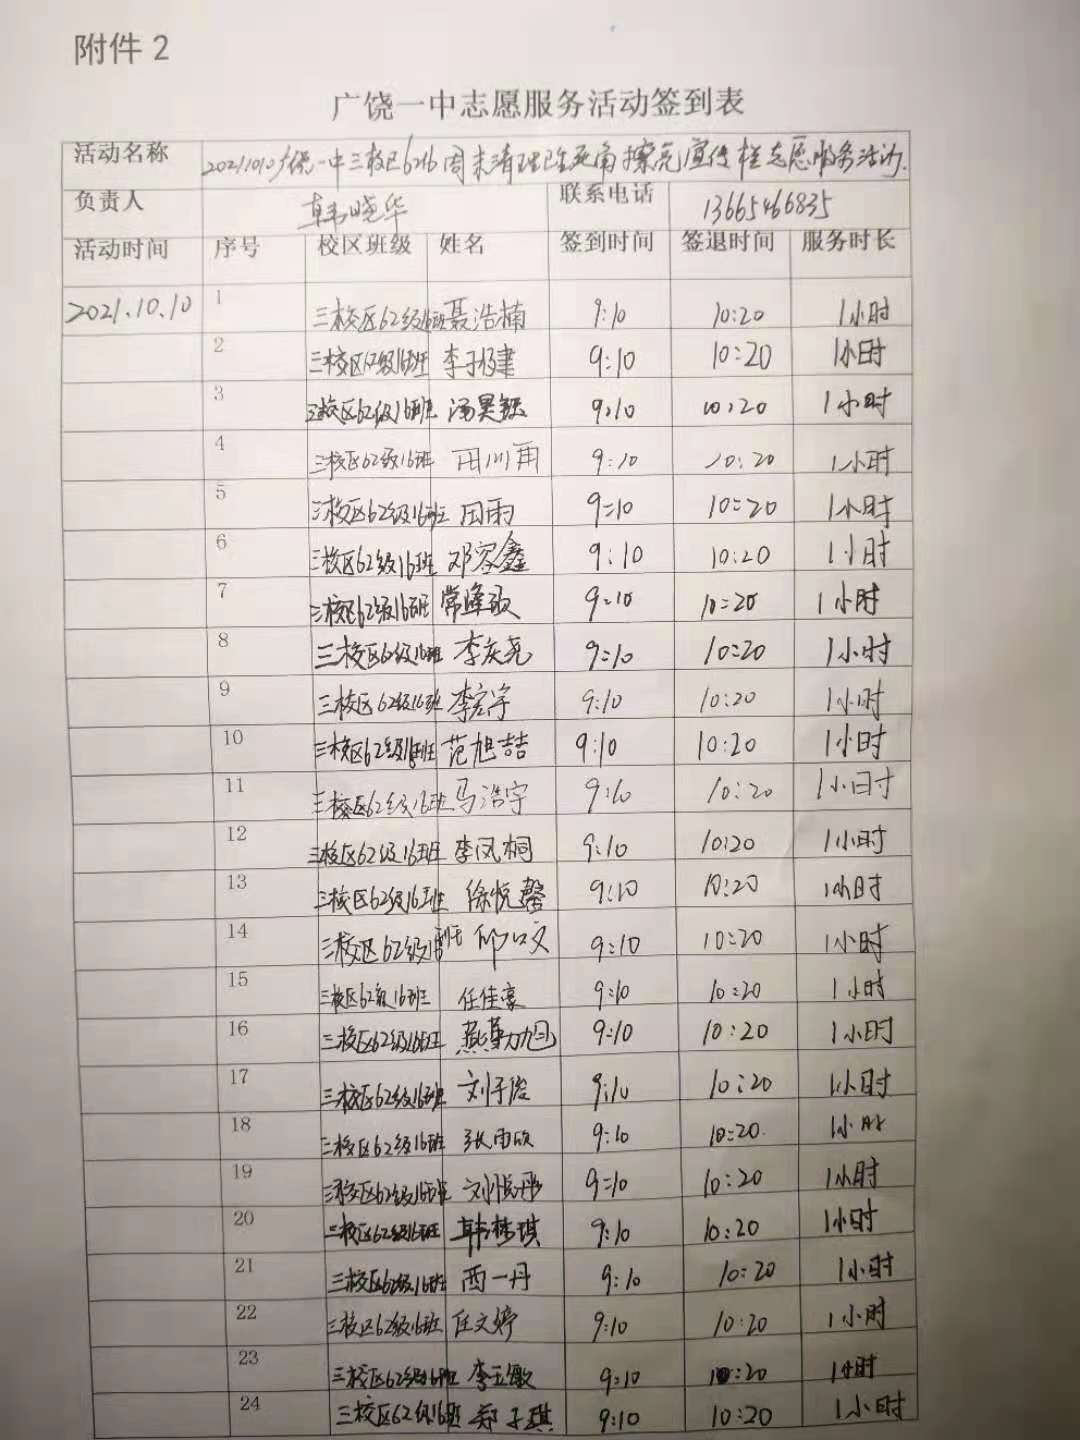 附件2
广饶一中志愿服务活动签到表
活动名称 20211010广饶一中三校区6216周末清理卫生死角擦亮宣传栏志愿服务活动.
负责人 韩晓华 联系电话 13665466835
活动时间 序号 校区班级 姓名 签到时间 签退时间 服务时长
2021.10.10 1 三校区62级16班 聂浩楠 9:10 10:20 1小时
2 三校区62级16班 李子 9:10 10:20 1小时
3 三校区62级16班 汤昊 9:10 10:20 1小时
4 三校区62级16班 9:10 10:20 1小时
5 三校区62级16班 田雨 9:10 10:20 1小时
6 三校区62级16班 邓容鑫 9:10 10:20 1小时
7 三校区62级16班 常峰 9:10 10:20 1小时
8 三校区62级16班 李庆尧 9:10 10:20 1小时
9 三校区62级16班 李宏宇 9:10 10:20 1小时
10 三校区62级16班 范旭喆 9:10 10:20 1小时
11 三校区62级16班 马浩宇 9:10 10:20 1小时
12 三校区62级16班 李凤桐 9:10 10:20 1小时
13 三校区62级16班 徐悦馨 9:10 10:20 1小时
14 三校区62级16班 9:10 10:20 1小时
15 三校区62级16班 任佳豪 9:10 10:20 1小时
16 三校区62级16班 燕 旭 9:10 10:20 1小时
17 三校区62级16班 刘子俊 9:10 10:20 1小时
18 三校区62级16班 张雨欣 9:10 10:20. 1小时
19 三校区62级16班 刘悦彤 9:10 10:20 1小时
20 三校区62级16班 韩梦琪 9:10 10:20 1小时
21 三校区62级16班 西一丹 9:10 10:20 1小时
22 三校区62级16班 任文婷 9:10 10:20 1小时
23 三校区62级16班 李玉敏 9:10 10:20 1小时
24 三校区62级16班 郑子琪 9:10 10:20 1小时